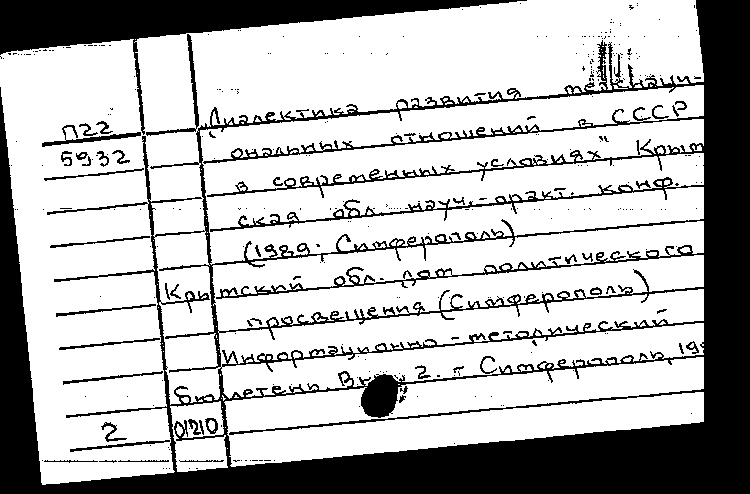 П22
5932
"Диалектика развития межнаци-
ональных отношений в СССР
в современных условиях", Крым
ская обл. науч.-практ. конф.
(1989; Симферополь)
Крымский обл. дом политического
просвещения (Симферополь)
Информационно-методический
бюллетень. 2. - Симферополь, 19
2 01210